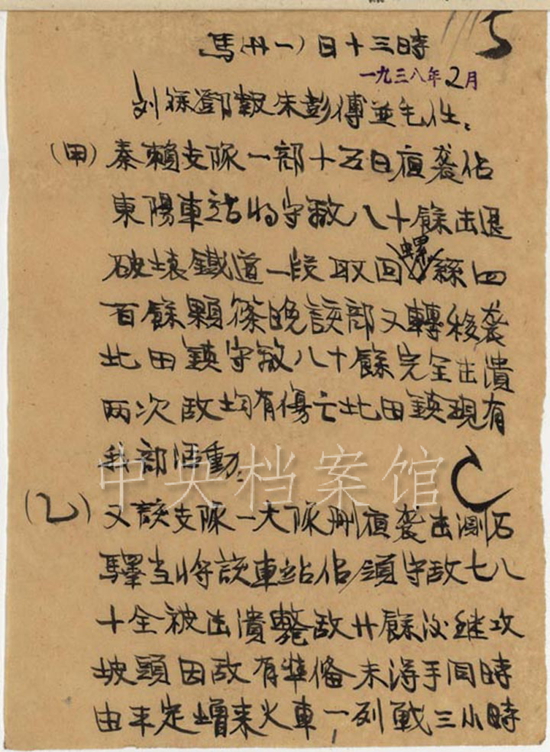 5
馬(廿一)日十三時
一九三八年2月
刘徐鄧報朱彭傅並毛任:
(甲)秦賴支隊一部十五日夜襲佔
東陽車站將守敵八十餘击退
破壞鐵道一段取回螺絲四
百餘顆篠晚該部又轉移袭
北田鎮守敵八十餘完全击潰
兩次敌均有傷亡北田鎮現有
我部活動。
(乙)又該支隊一大隊刪夜襲击測石
驛当将該車站佔領守敌七八
十全被击潰斃敌廿餘後継攻
坡頭因敌有準備未得手同時
由平定增来火車一列戰三小時
中央档案馆